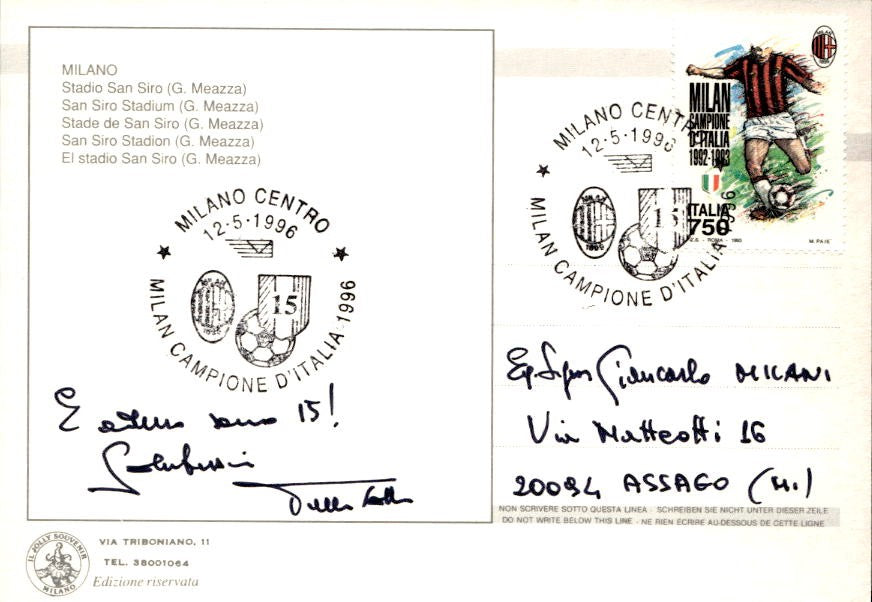 MILANO
Stadio San Siro (G. Meazza)
San Siro Stadium (G. Meazza)
Stade de San Siro (G. Meazza)
San Siro Stadion (G. Meazza)
El stadio San Siro (G. Meazza)
MILANO CENTRO
12-5-1996
15
MILAN CAMPIONE D'ITALIA 1996
E adesso sono 15!
MILAN
CAMPIONE
D'ITALIA
1992-1993
ITALIA
750
ROMA
MILANO CENTRO
12-5-1996
MILAN
1899
15
MILAN CAMPIONE D'ITALIA 1996
Eg. Signor Giancarlo MILANI
Via Matteotti 16
20094 ASSAGO (Mi)
NON SCRIVERE SOTTO QUESTA LINEA - SCHREIBEN SIE NICHT UNTER DIESER ZEILE
DO NOT WRITE BELOW THIS LINE - NE RIEN ECRIRE AU-DESSOUS DE CETTE LIGNE
IL JOLLY SOUVENIR
MILANO
VIA TRIBONIANO, 11
TEL. 38001064
Edizione riservata